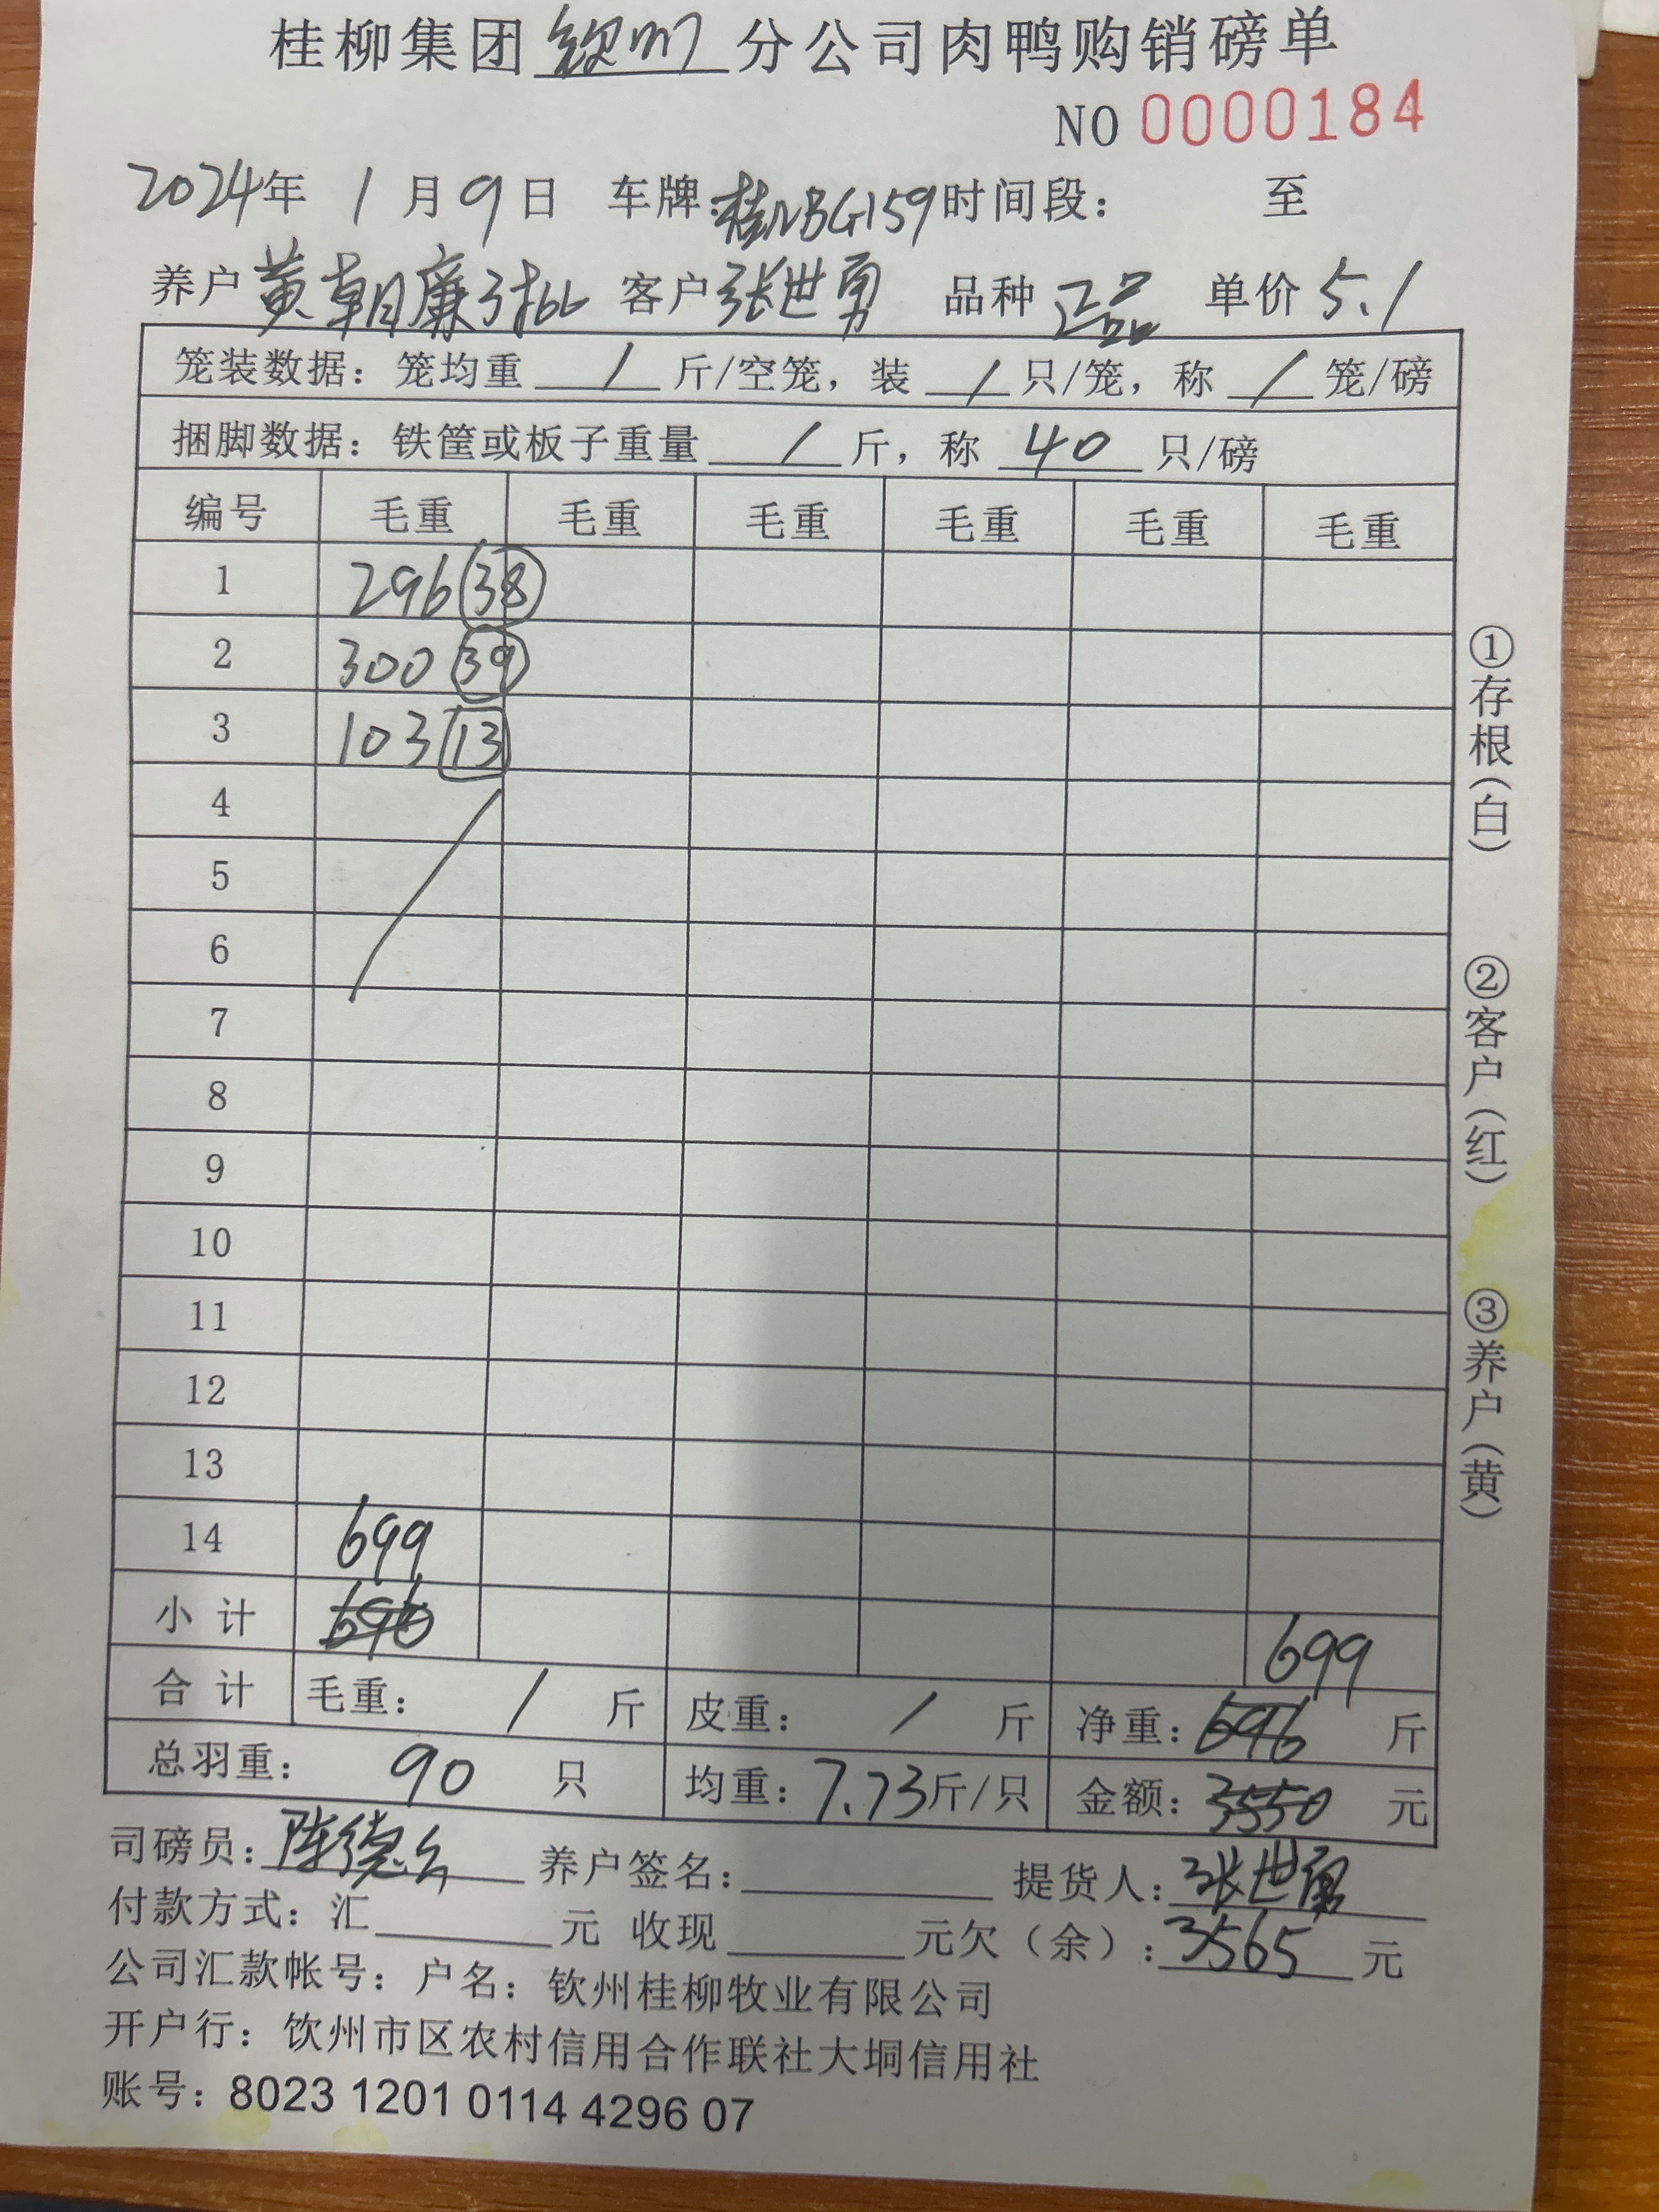 桂柳集团钦州分公司肉鸭购销磅单
NO 0000184
2024年 1 月 9 日 车牌:桂NBG159 时间段: 至
养户 黄朝廉3批 客户 张世勇 品种 正品 单价 5.1
笼装数据: 笼均重 / 斤/空笼, 装 / 只/笼, 称 / 笼/磅
捆脚数据: 铁筐或板子重量 / 斤, 称 40 只/磅
编号 毛重 毛重 毛重 毛重 毛重 毛重
1 296 38
2 300 39
3 103 13
4
5
6
7
8
9
10
11
12
13
14 699
小 计 696 699
合 计 毛重: / 斤 皮重: / 斤 净重: 696 斤
总羽重: 90 只 均重: 7.73斤/只 金额: 3550 元
司磅员: 陈德 养户签名: 提货人: 张世勇
付款方式: 汇 元 收现 元欠(余): 3565 元
公司汇款帐号: 户名: 钦州桂柳牧业有限公司
开户行: 饮州市区农村信用合作联社大垌信用社
账号: 8023 1201 0114 4296 07
①存根(白)
②客户(红)
③养户(黄)